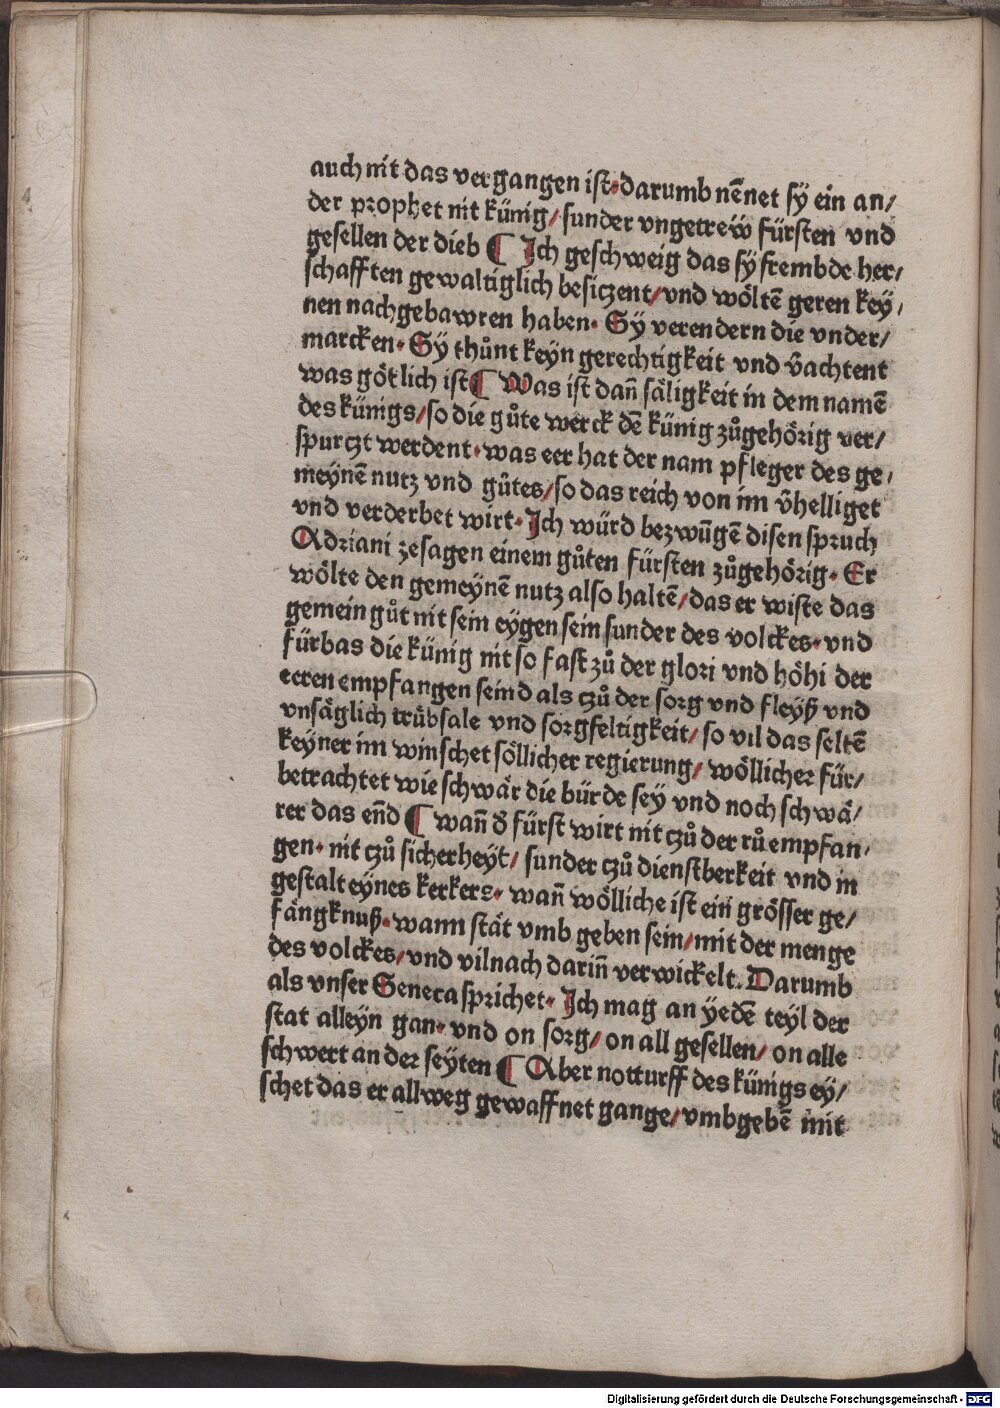 auch nit das vergangen ist·darumb nēnet sÿ ein an/
der prophet nit künig/ sunder vngetreẅ fürsten vnd
gesellen der dieb ¶ Ich geschweig das sÿ frembde her/
schafften gewaltiglich besiczent/vnd wöltē geren key/
nen nachgebawren haben· Sÿ verendern die vnder/
marcken· Sÿ thůnt keÿn gerechtigkeit vnd v̄achtent
was götlich ist¶ Was ist dañ säligkeit in dem namē
des künigs/so die gůte werck dē künig zůgehörig ver/
spurczt werdent·was eer hat der nam pfleger des ge/
meÿnē nutz vnd gůtes/so das reich von im v̄helliget
vnd verderbet wirt· Ich würd bezwūgē disen spruch
Adriani zesagen einem gůten fürsten zůgehörig· Er
wölte den gemeÿnē nutz also haltē/das er wiste das
gemein gůt nit sein eÿgen sein sunder des volckes·vnd
fürbas die künig nit so fast zů der glori vnd höhi der
eeren empfangen seind als czů der sorg vnd fleÿß vnd
vnsäglich trübsale vnd sorgfeltigkeit/ so vil das seltē
keÿner im winschet söllicher regierung/ wöllicher für/
betrachtet wie schwär die bürde seÿ vnd noch schwä/
rer das eñd ¶ wañ d̄ fürst wirt nit czů der rů empfan/
gen· nit czů sicherheÿt/ sunder czů dienstberkeit vnd in
gestalt eÿnes kerkers· wañ wölliche ist ein grösser ge/
fängknuß·wann stät vmb geben sein/mit der menge
des volckes/vnd vilnach dariñ verwickelt. Darumb
als vnser Seneca sprichet· Ich mag an ÿedē teÿl der
stat alleÿn gan· vnd on sorg/ on all gesellen/ on alle
schwert an der seÿten ¶ Aber notturff des künigs eÿ/
schet das er allweg gewaffnet gange/vmbgebē mit
Digitalisierung gefördert durch die Deutsche Forschungsgemeinschaft - DFG